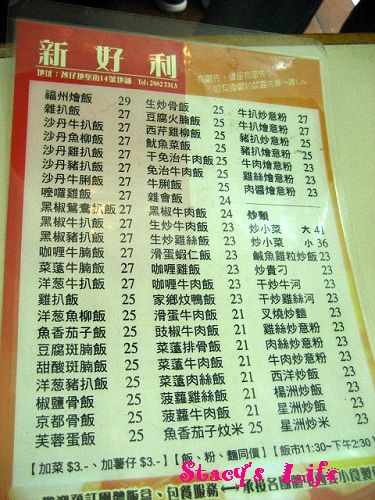 新好利
地址：氹仔地堡街14號地舖 Tel: 2882 7313
福州燴飯 29
雜扒飯 27
沙丹牛扒飯 27
沙丹魚柳飯 27
沙丹雞扒飯 27
沙丹豬扒飯 27
沙丹牛脷飯 27
嚤囉雞飯 27
黑椒鴛鴦扒飯 27
黑椒牛扒飯 27
黑椒豬扒飯 27
咖喱牛腩飯 27
菜薳牛腩飯 27
洋葱牛扒飯 27
雞扒飯 25
洋葱魚柳飯 25
魚香茄子飯 25
豆腐斑腩飯 25
甜酸斑腩飯 25
洋葱豬扒飯 25
椒鹽骨飯 25
京都骨飯 25
芙蓉蛋飯 25
生炒骨飯 25
豆腐火腩飯 25
西芹雞柳飯 25
魷魚菜飯 25
干免治牛肉飯 25
免治牛肉飯 25
牛脷飯 25
雜會飯 24
黑椒牛肉飯 24
生炒牛肉飯 23
生炒雞絲飯 23
滑蛋蝦仁飯 23
咖喱雞飯 23
咖喱牛肉飯 23
家鄉炆鴨飯 23
滑蛋牛肉飯 21
豉椒牛肉飯 21
菜薳排骨飯 21
菜薳牛肉飯 21
菜薳肉絲飯 21
菠蘿雞飯 21
菠蘿牛肉飯 21
魚香茄子炆米 25
牛扒炒意粉 27
牛扒燴意粉 27
豬扒炒意粉 25
豬扒燴意粉 25
牛肉燴意粉 23
雞絲燴意粉 23
肉醬燴意粉 23
炒類
炒小菜 大 41
炒小菜 小 36
鹹魚雞粒炒飯 23
炒貴刁 23
干炒牛河 23
干炒雞絲河 23
叉燒炒麵 23
雞絲炒意粉 23
肉絲炒意粉 23
牛肉炒意粉 23
西洋炒飯 23
楊洲炒飯 23
星洲炒飯 23
星洲炒米 23
【加菜 $3.-、加薯仔 $3.-】【飯、粉、麵同價】【飯市11:30~下午2:30
Stacy's Life